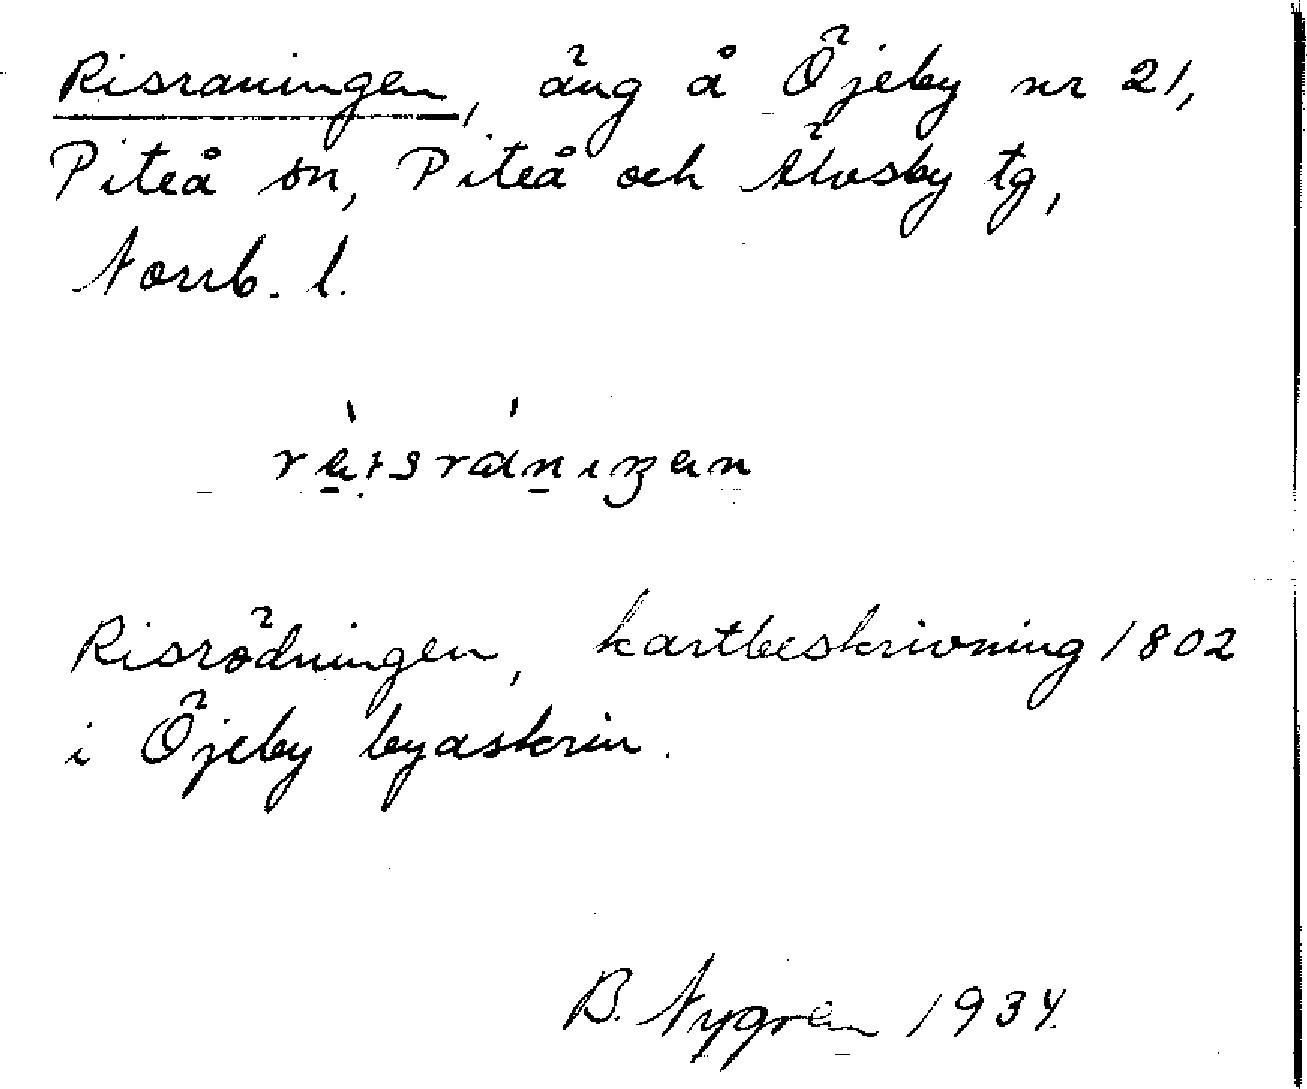 Risraningen, äng å Öjeby nr 21,
Piteå sn, Piteå och Älvsby tg,
Norrb. l.
Risrödningen, kartbeskrivning 1802
i Öjeby byaskrin.
B. Nygren 1934.